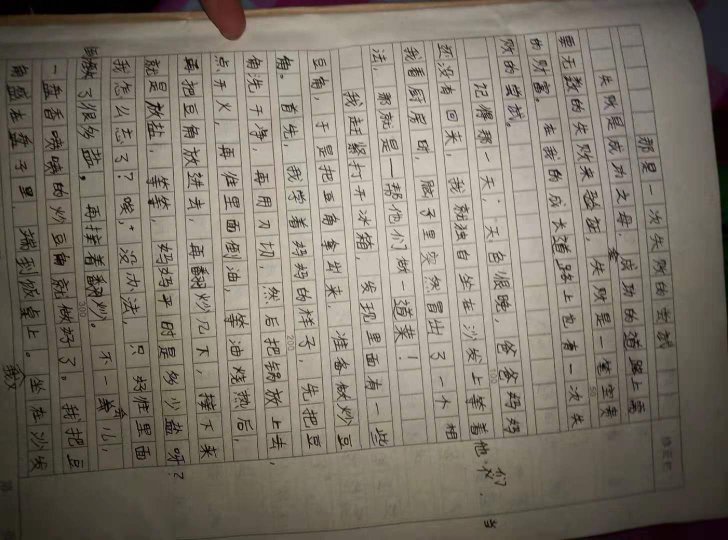 那是一次失败的尝试
失败是成功之母，成功的道路上需
要无数的失败来验证，失败是一笔宝贵
的财富。在我的成长道路上也有一次失
败的尝试。
记得那一天，天色很晚，爸爸妈妈
还没有回来，我就独自坐在沙发上等着他们，当
我看厨房时，脑子里突然冒出了一个想
法，那就是一帮他们做一道菜！
我赶紧打开冰箱，发现里面有一些
豆角，于是把豆角拿出来，准备做炒豆
角。首先，我学着妈妈的样子，先把豆
角洗干净，再用刀切，然后把锅放上去，
点开火，再往里面倒油，等油烧热后，
再把豆角放进去，再翻炒几下，接下来
就是放盐，等等，妈妈平时是多少盐呀？
我怎么忘了？唉，没办法，只好往里面
撒了很多盐。再接着翻炒。不一会儿，
一盘香喷喷的炒豆角就做好了。我把豆
角盛在盘子里，端到饭桌上。我又坐在沙发
200
300